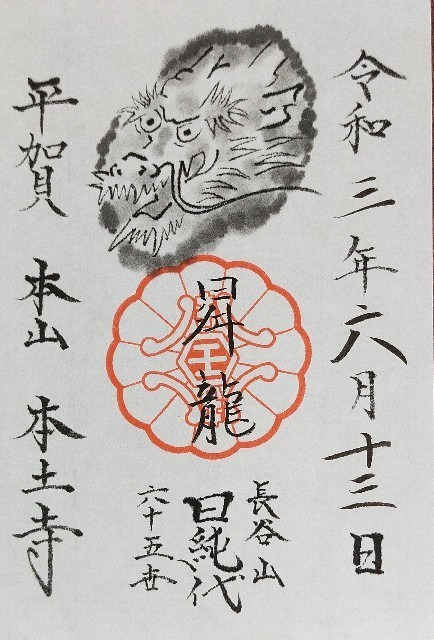 令和三年六月十三日
昇龍
長谷山
日純代
六十五世
平賀 本山 本土寺